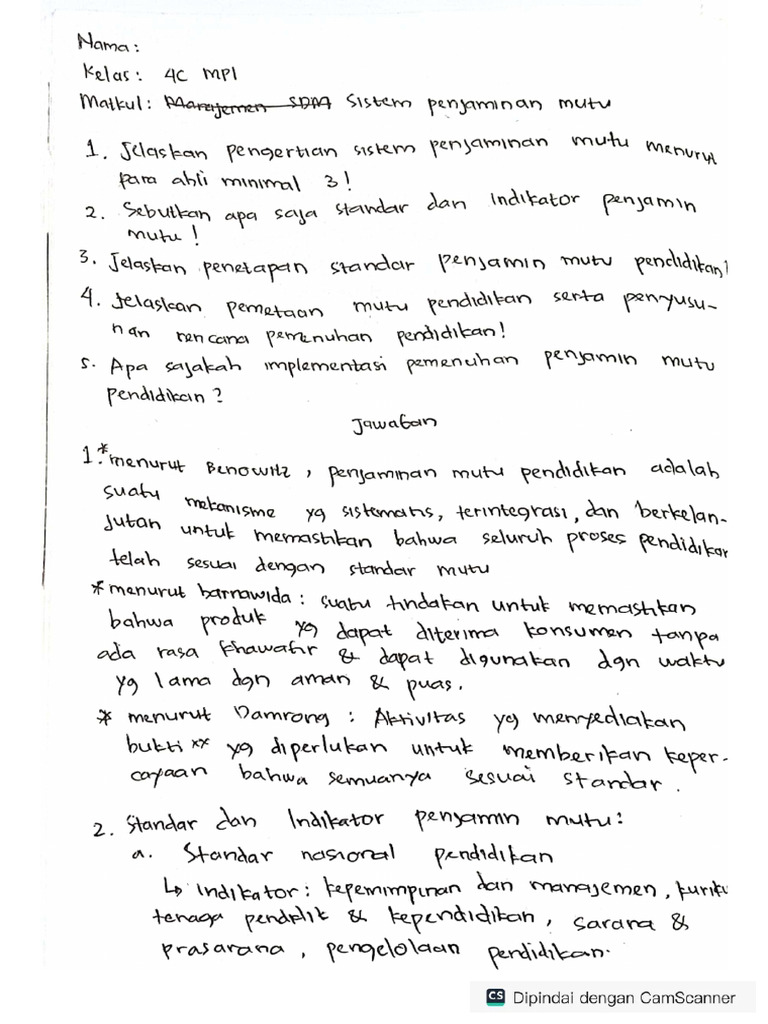 Nama :
Kelas : 4C MPI
Matkul : Manajemen SDM Sistem penjaminan mutu
1. Jelaskan pengertian sistem penjaminan mutu menurut
para ahli minimal 3!
2. Sebutkan apa saja standar dan Indikator penjamin
mutu!
3. Jelaskan penetapan standar penjamin mutu pendidikan!
4. Jelaskan pemetaan mutu pendidikan serta penyusu-
nan rencana pemenuhan pendidikan!
5. Apa sajakah implementasi pemenuhan penjamin mutu
pendidikan?
Jawaban
1.*menurut Benowitz, penjaminan mutu pendidikan adalah
suatu mekanisme yg sistematis, terintegrasi, dan berkelan-
jutan untuk memastikan bahwa seluruh proses pendidikan
telah sesuai dengan standar mutu
*menurut barnawida : suatu tindakan untuk memastikan
bahwa produk yg dapat diterima konsumen tanpa
ada rasa khawatir & dapat digunakan dgn waktu
yg lama dgn aman & puas.
* menurut Damrong : Aktivitas yg menyediakan
bukti xx yg diperlukan untuk memberikan keper-
cayaan bahwa semuanya sesuai standar.
2. Standar dan Indikator penjamin mutu:
a. Standar nasional pendidikan
↳ Indikator : kepemimpinan dan manajemen, kuriku
tenaga pendidik & kependidikan, sarana &
prasarana, pengelolaan pendidikan.
CS Dipindai dengan CamScanner